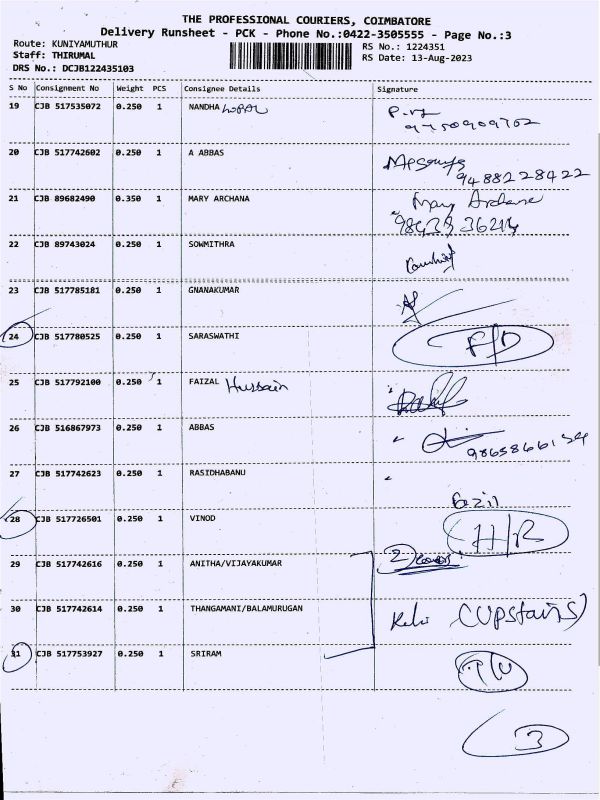 THE PROFESSIONAL COURIERS, COIMBATORE
Delivery Runsheet - PCK - Phone No.:0422-3505555 - Page No.:3
Route: KUNIYAMUTHUR RS No.: 1224351
Staff: THIRUMAL RS Date: 13-Aug-2023
DRS No.: DCJB122435103
S No Consignment No Weight PCS Consignee Details Signature
19 CJB 517535072 0.250 1 NANDHA
9750909702
20 CJB 517742602 0.250 1 A ABBAS
9488228422
21 CJB 89682490 0.350 1 MARY ARCHANA Mary Archana
22 CJB 89743024 0.250 1 SOWMITHRA
23 CJB 517785181 0.250 1 GNANAKUMAR
24 CJB 517780525 0.250 1 SARASWATHI F/D
25 CJB 517792100 0.250 1 FAIZAL Hussain
26 CJB 516867973 0.250 1 ABBAS
27 CJB 517742623 0.250 1 RASIDHABANU
Fazil
28 CJB 517726501 0.250 1 VINOD H/R
29 CJB 517742616 0.250 1 ANITHA/VIJAYAKUMAR 2 covers
30 CJB 517742614 0.250 1 THANGAMANI/BALAMURUGAN (upstairs)
31 CJB 517753927 0.250 1 SRIRAM
3